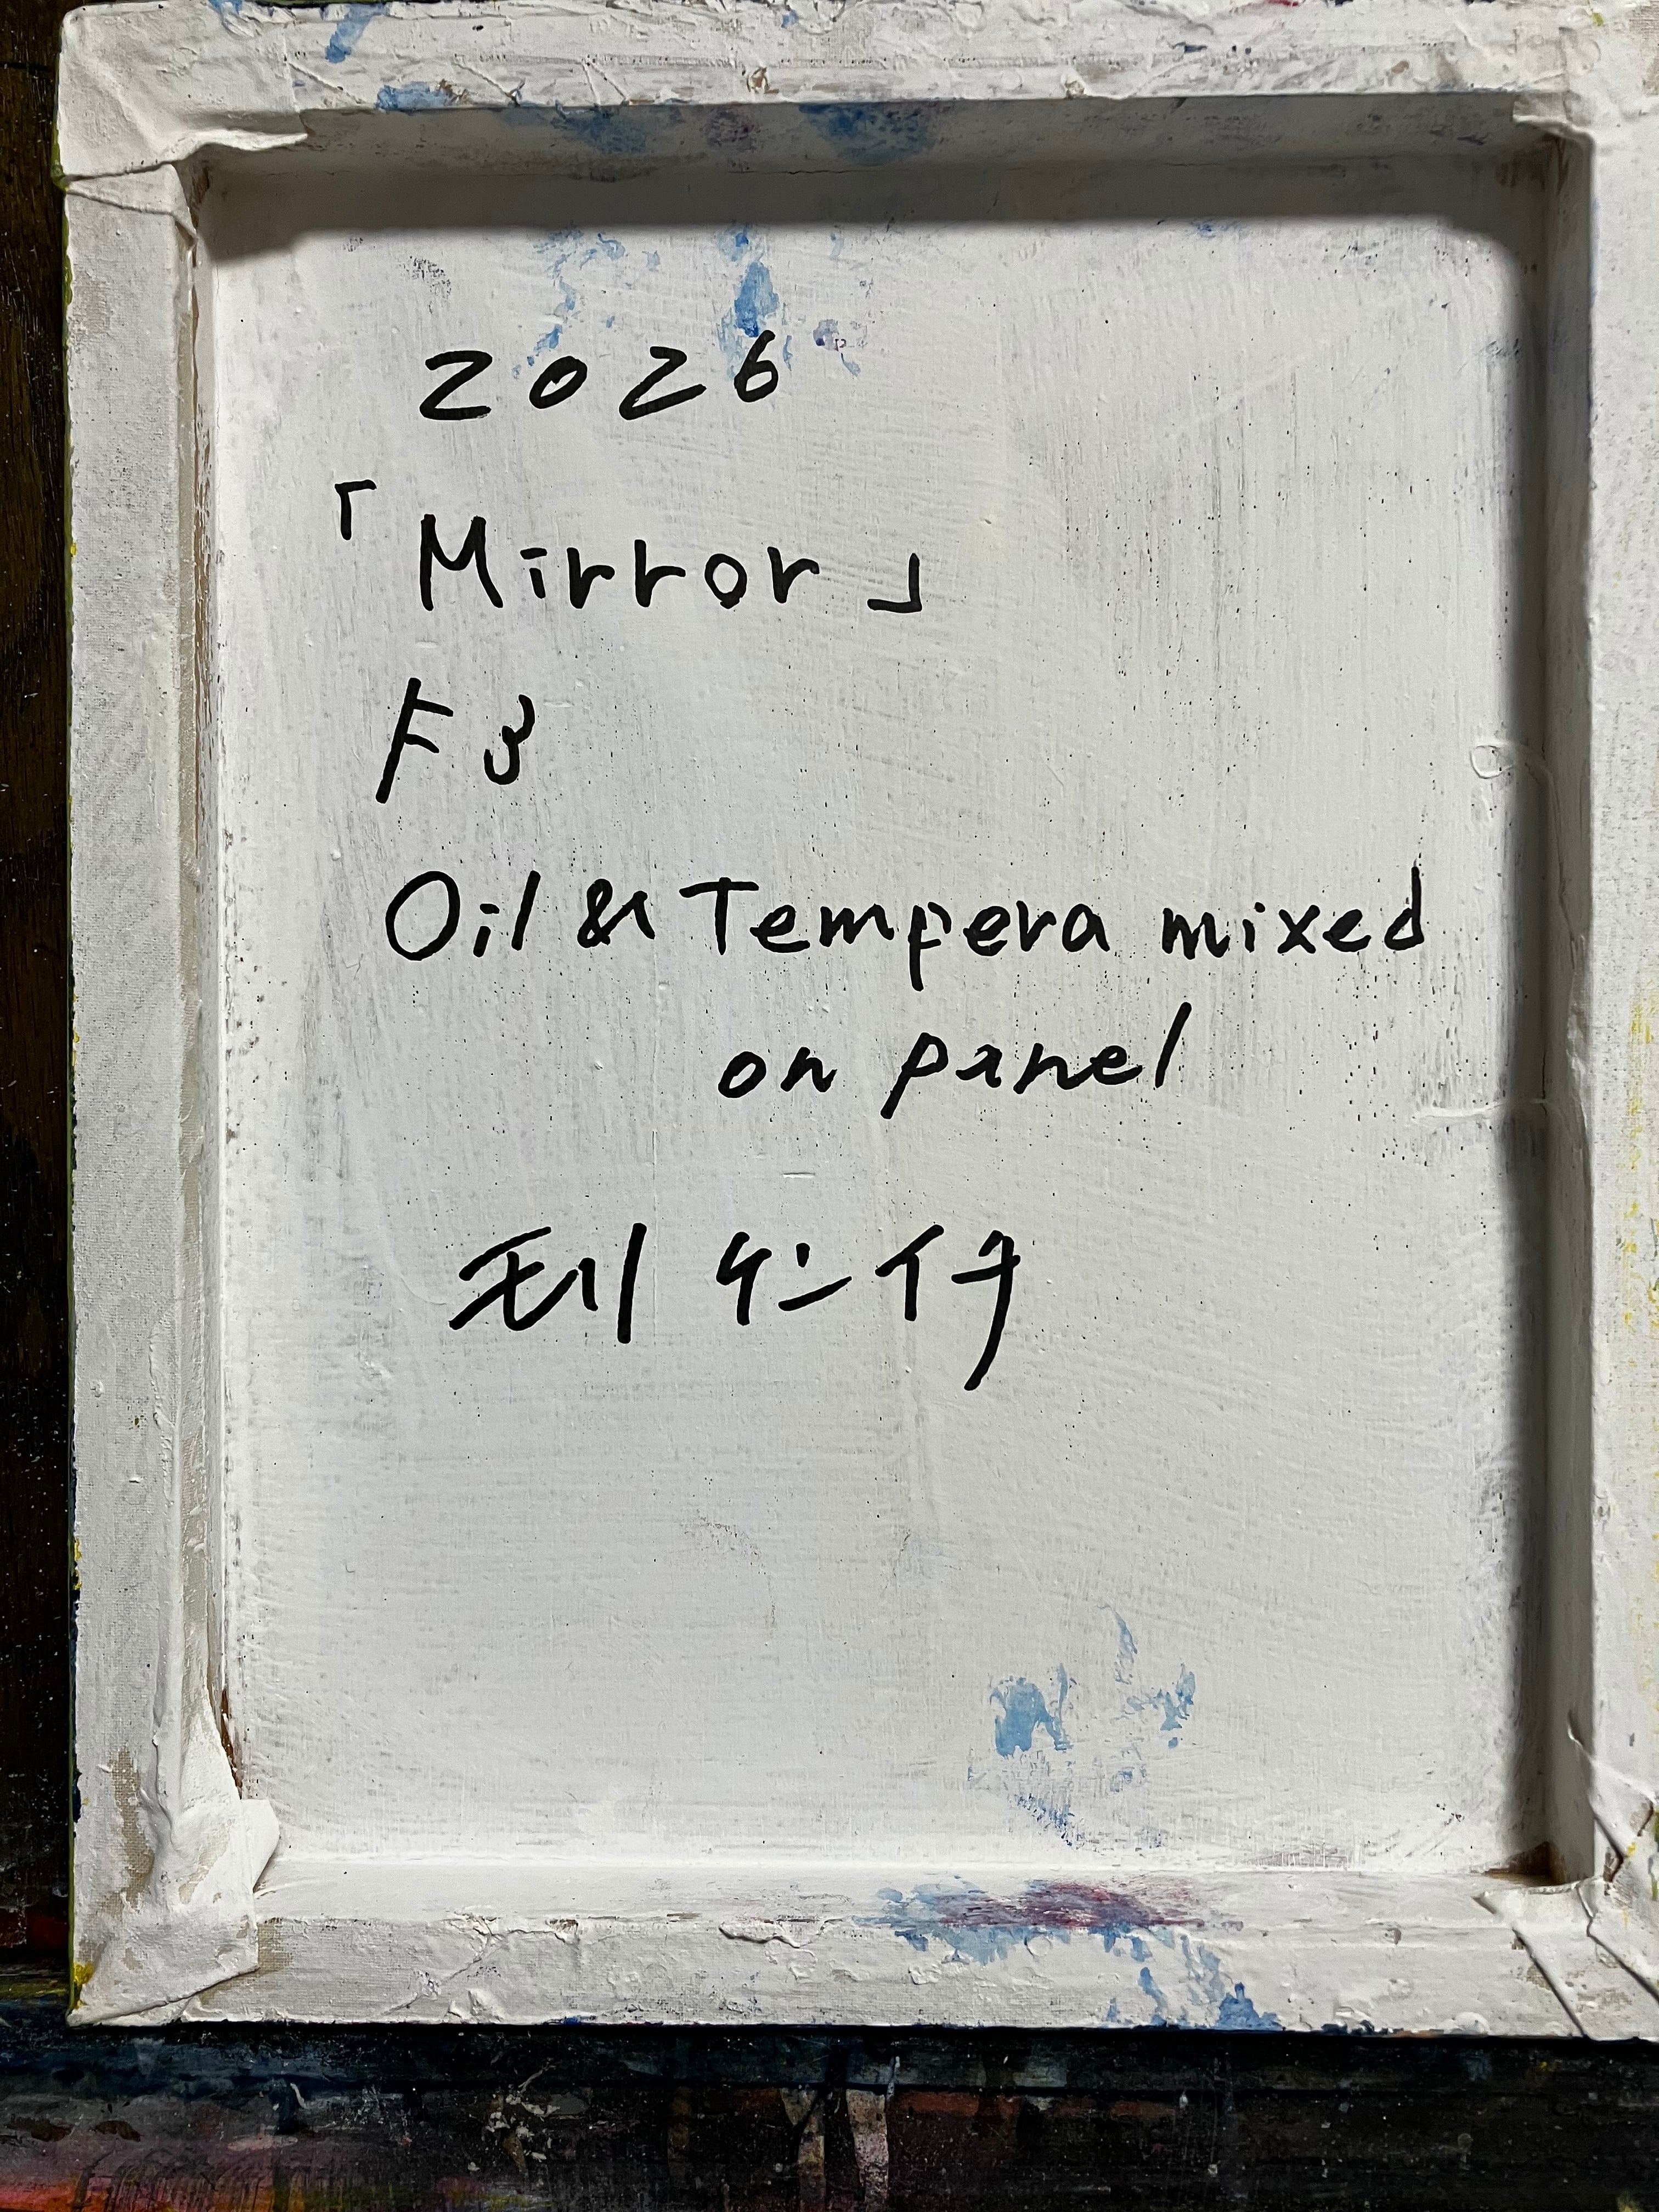 2026
「Mirror」
F3
Oil & Tempera mixed
on panel